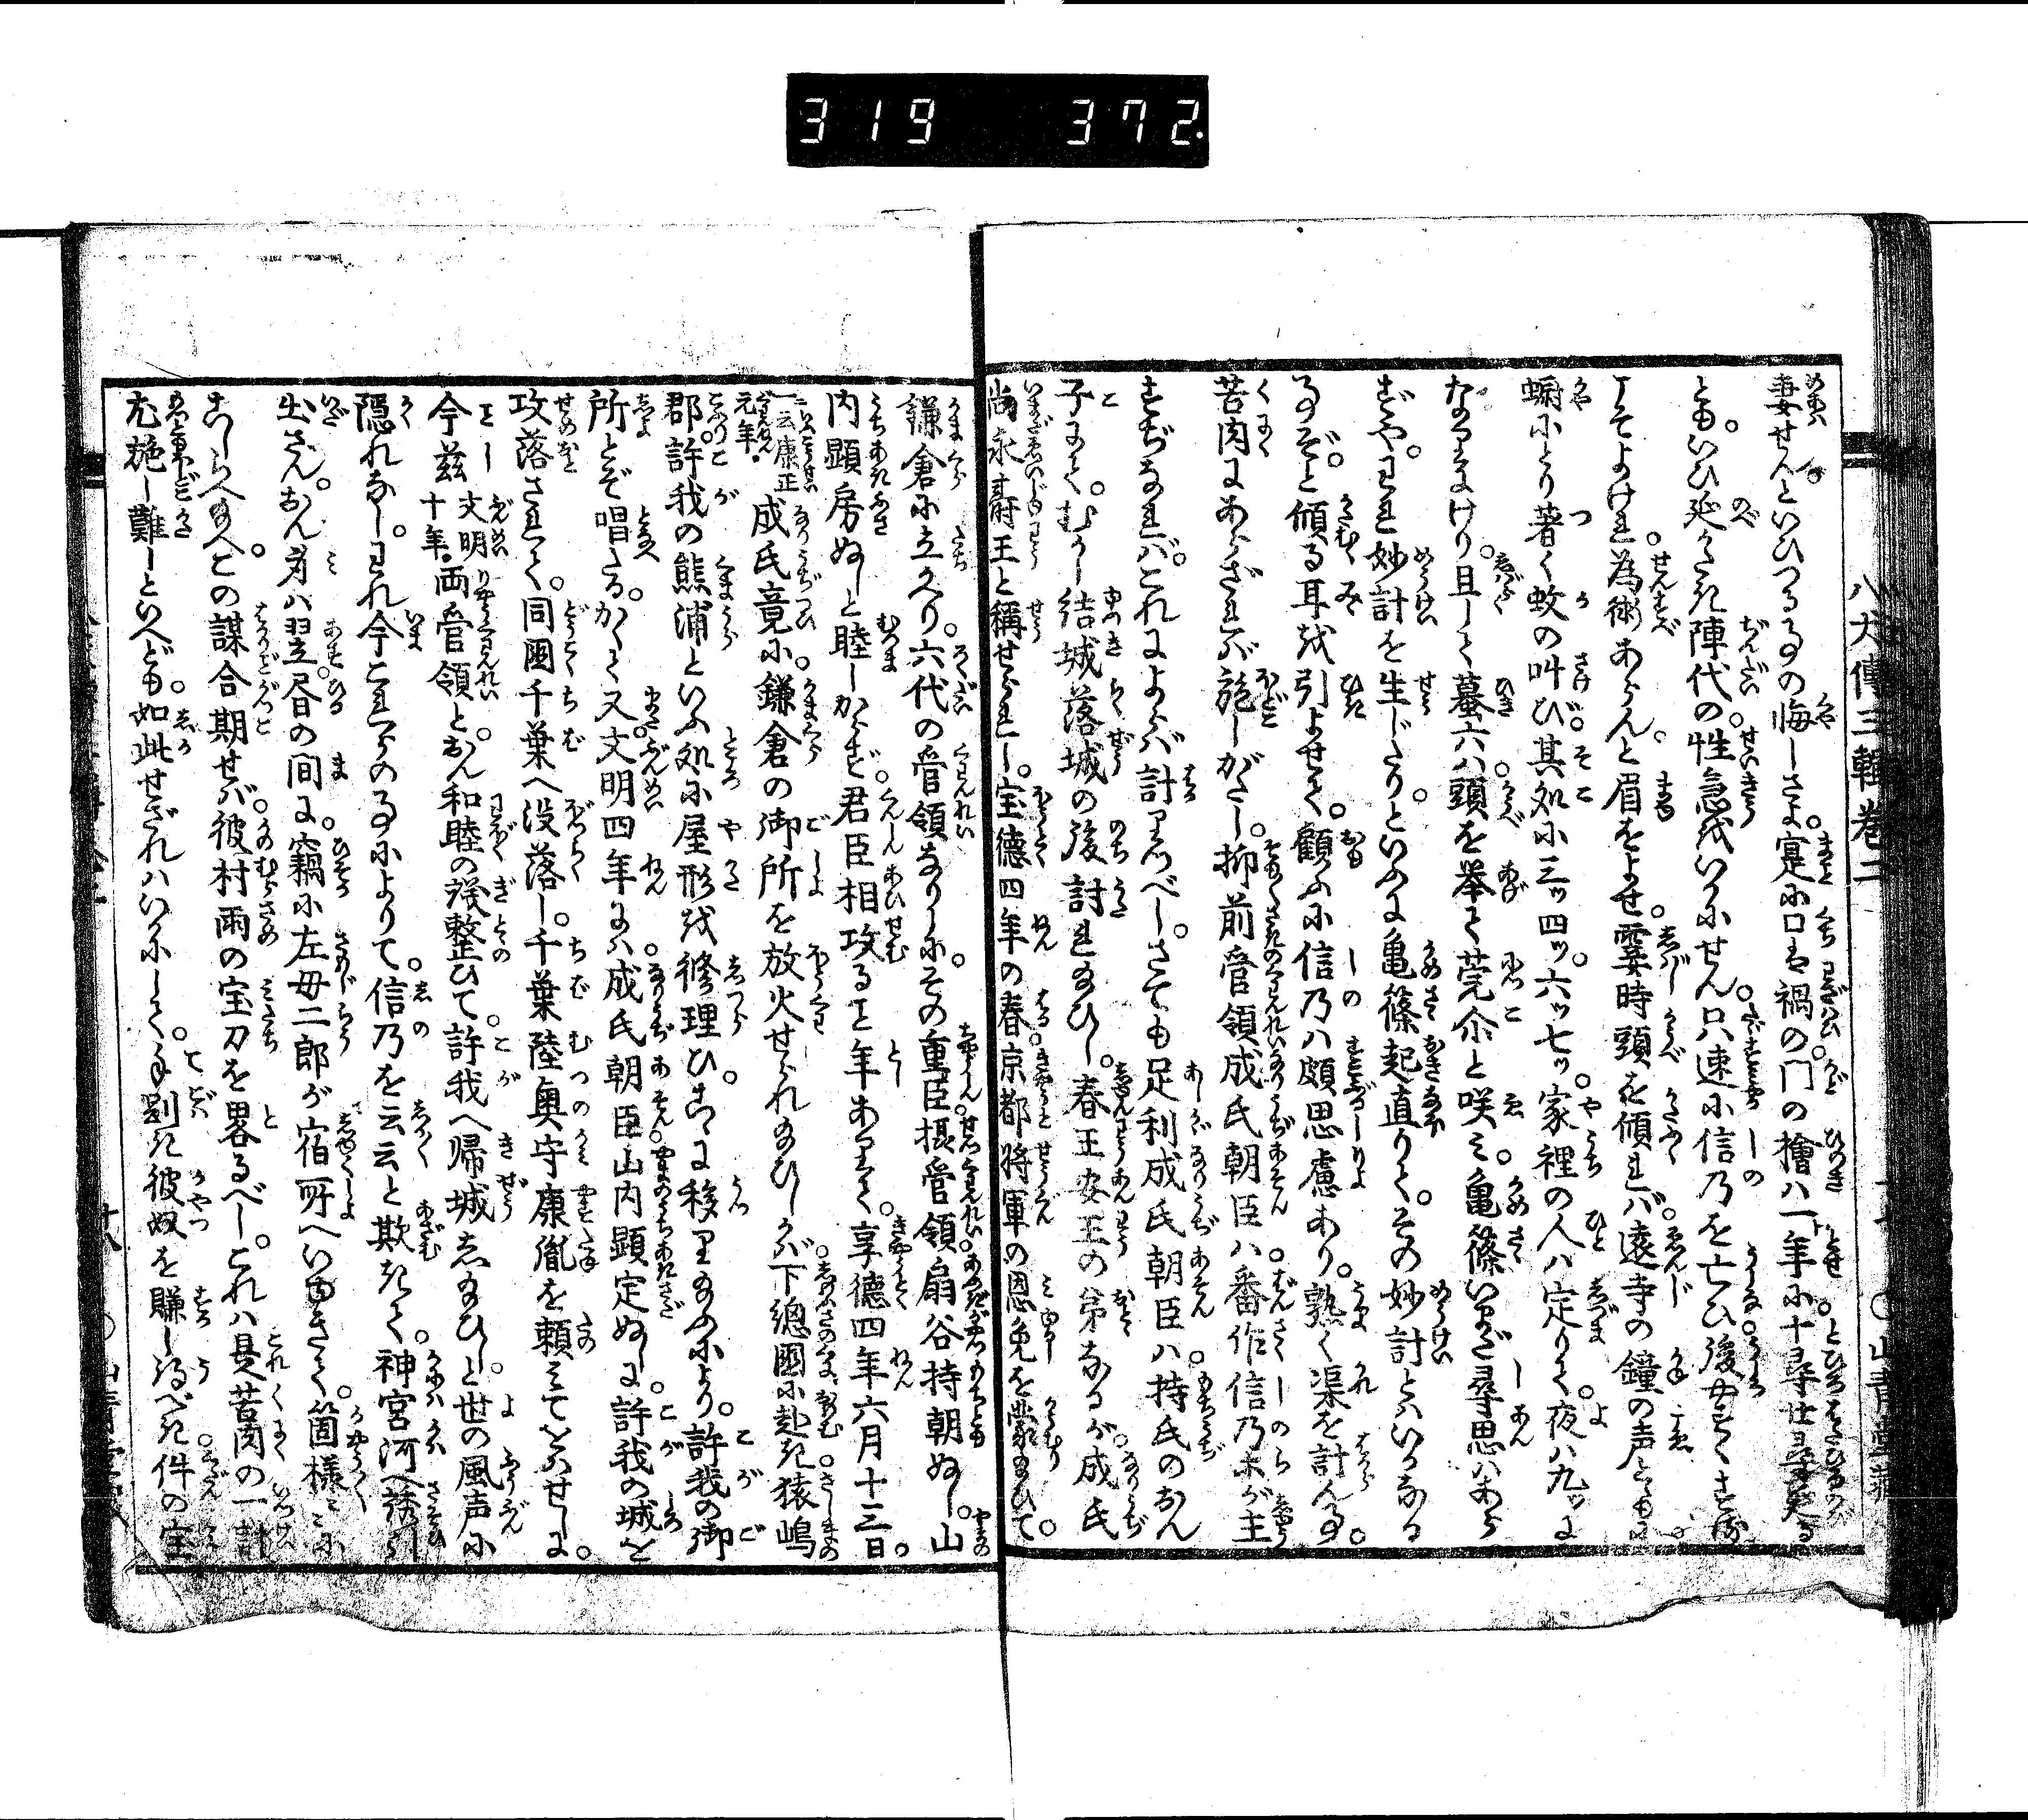 319 372.
八犬傳三輯卷二
山青堂藏
妻せんといひつる事の悔しさよ。寔に口は禍の。門の檜は一年に十尋廿尋突る
とも。いひ延がたき陣代の。性急をいかにせん。只速に信乃を亡ひ後やすくする
こそよけれ。為術あらんと。眉をよせ。霎時頭を傾れば。遠寺の鐘の声とともに
蜘にとり著く蚊の叫び。其処に三ッ四ッ。六ッ七ッ。家裡の人は定りて。夜は九ッに
なりにけり。且して蟇六は。頭を挙て莞尓と咲み。亀篠いまだ尋思はあら
ずや。われ妙計を生じたり。といふに亀篠起直りて。その妙計とはいかなる
事ぞと。傾る耳を引よせて。顧ふに信乃は頗思慮あり。熟く渠を討んる事。
苦肉にあらざれば施しがたし。抑前管領成氏朝臣は。番作信乃們が主
すぢなれば。これによらば計りつべし。さても足利成氏朝臣は。持氏のおん
子にて。むかし結城落城の後討れ給ひし。春王安王の弟なるが。成氏
尚永寿王と稱せられし。宝德四年の春。京都將軍の恩免を蒙給ひて。
鎌倉に立かへり。六代の管領なりしに。その重臣。摂管領。扇谷持朝ぬし。山
内顕房ぬしと睦しからず。君臣相攻ること年ありて。享德四年六月十三日。
一云康正元年。成氏竟に。鎌倉の御所を放火せられ給ひしかば。下總國に赴き。猿嶋
郡。許我の熊浦といふ処に屋形を修理ひ。こゝに移り給ふにより。許我の御
所とぞ唱たる。かくて又文明四年には。成氏朝臣。山内顕定ぬしに。許我の城を
攻落されて。同國千葉へ没落し。千葉陸奥守康胤を頼みてをはせしに。
今茲文明十年。両管領と。おん和睦の義整ひて。許我へ帰城し給ひしと。世の風声に
隠れなし。われ今これらの事によりて。信乃を云云と欺きて。神宮河へ誘引
出さん。おん身は翌。昼の間に。竊に左母二郎が宿所へいゆきて。箇様々々に
こしらへ給へ。との謀合期せば。彼村雨の宝刀を畧るべし。これは是苦肉の一計
尤施し難しといへども。如此せざればいかにして。手剛き彼奴を賺し得べき。件の宝